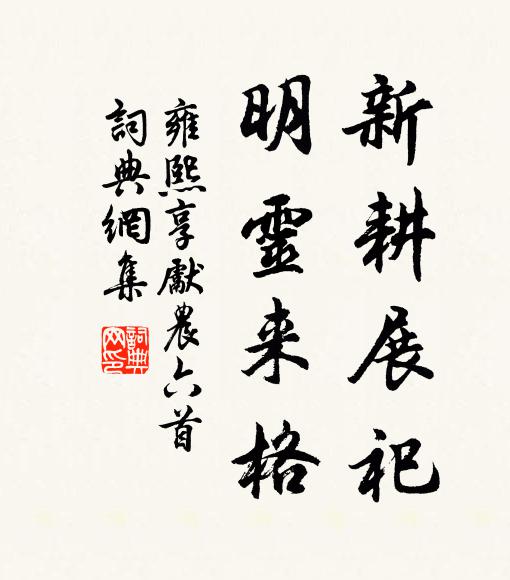 新耕展祀
明靈来格
雍熙享獻農六首
詞典網集
詞典网印